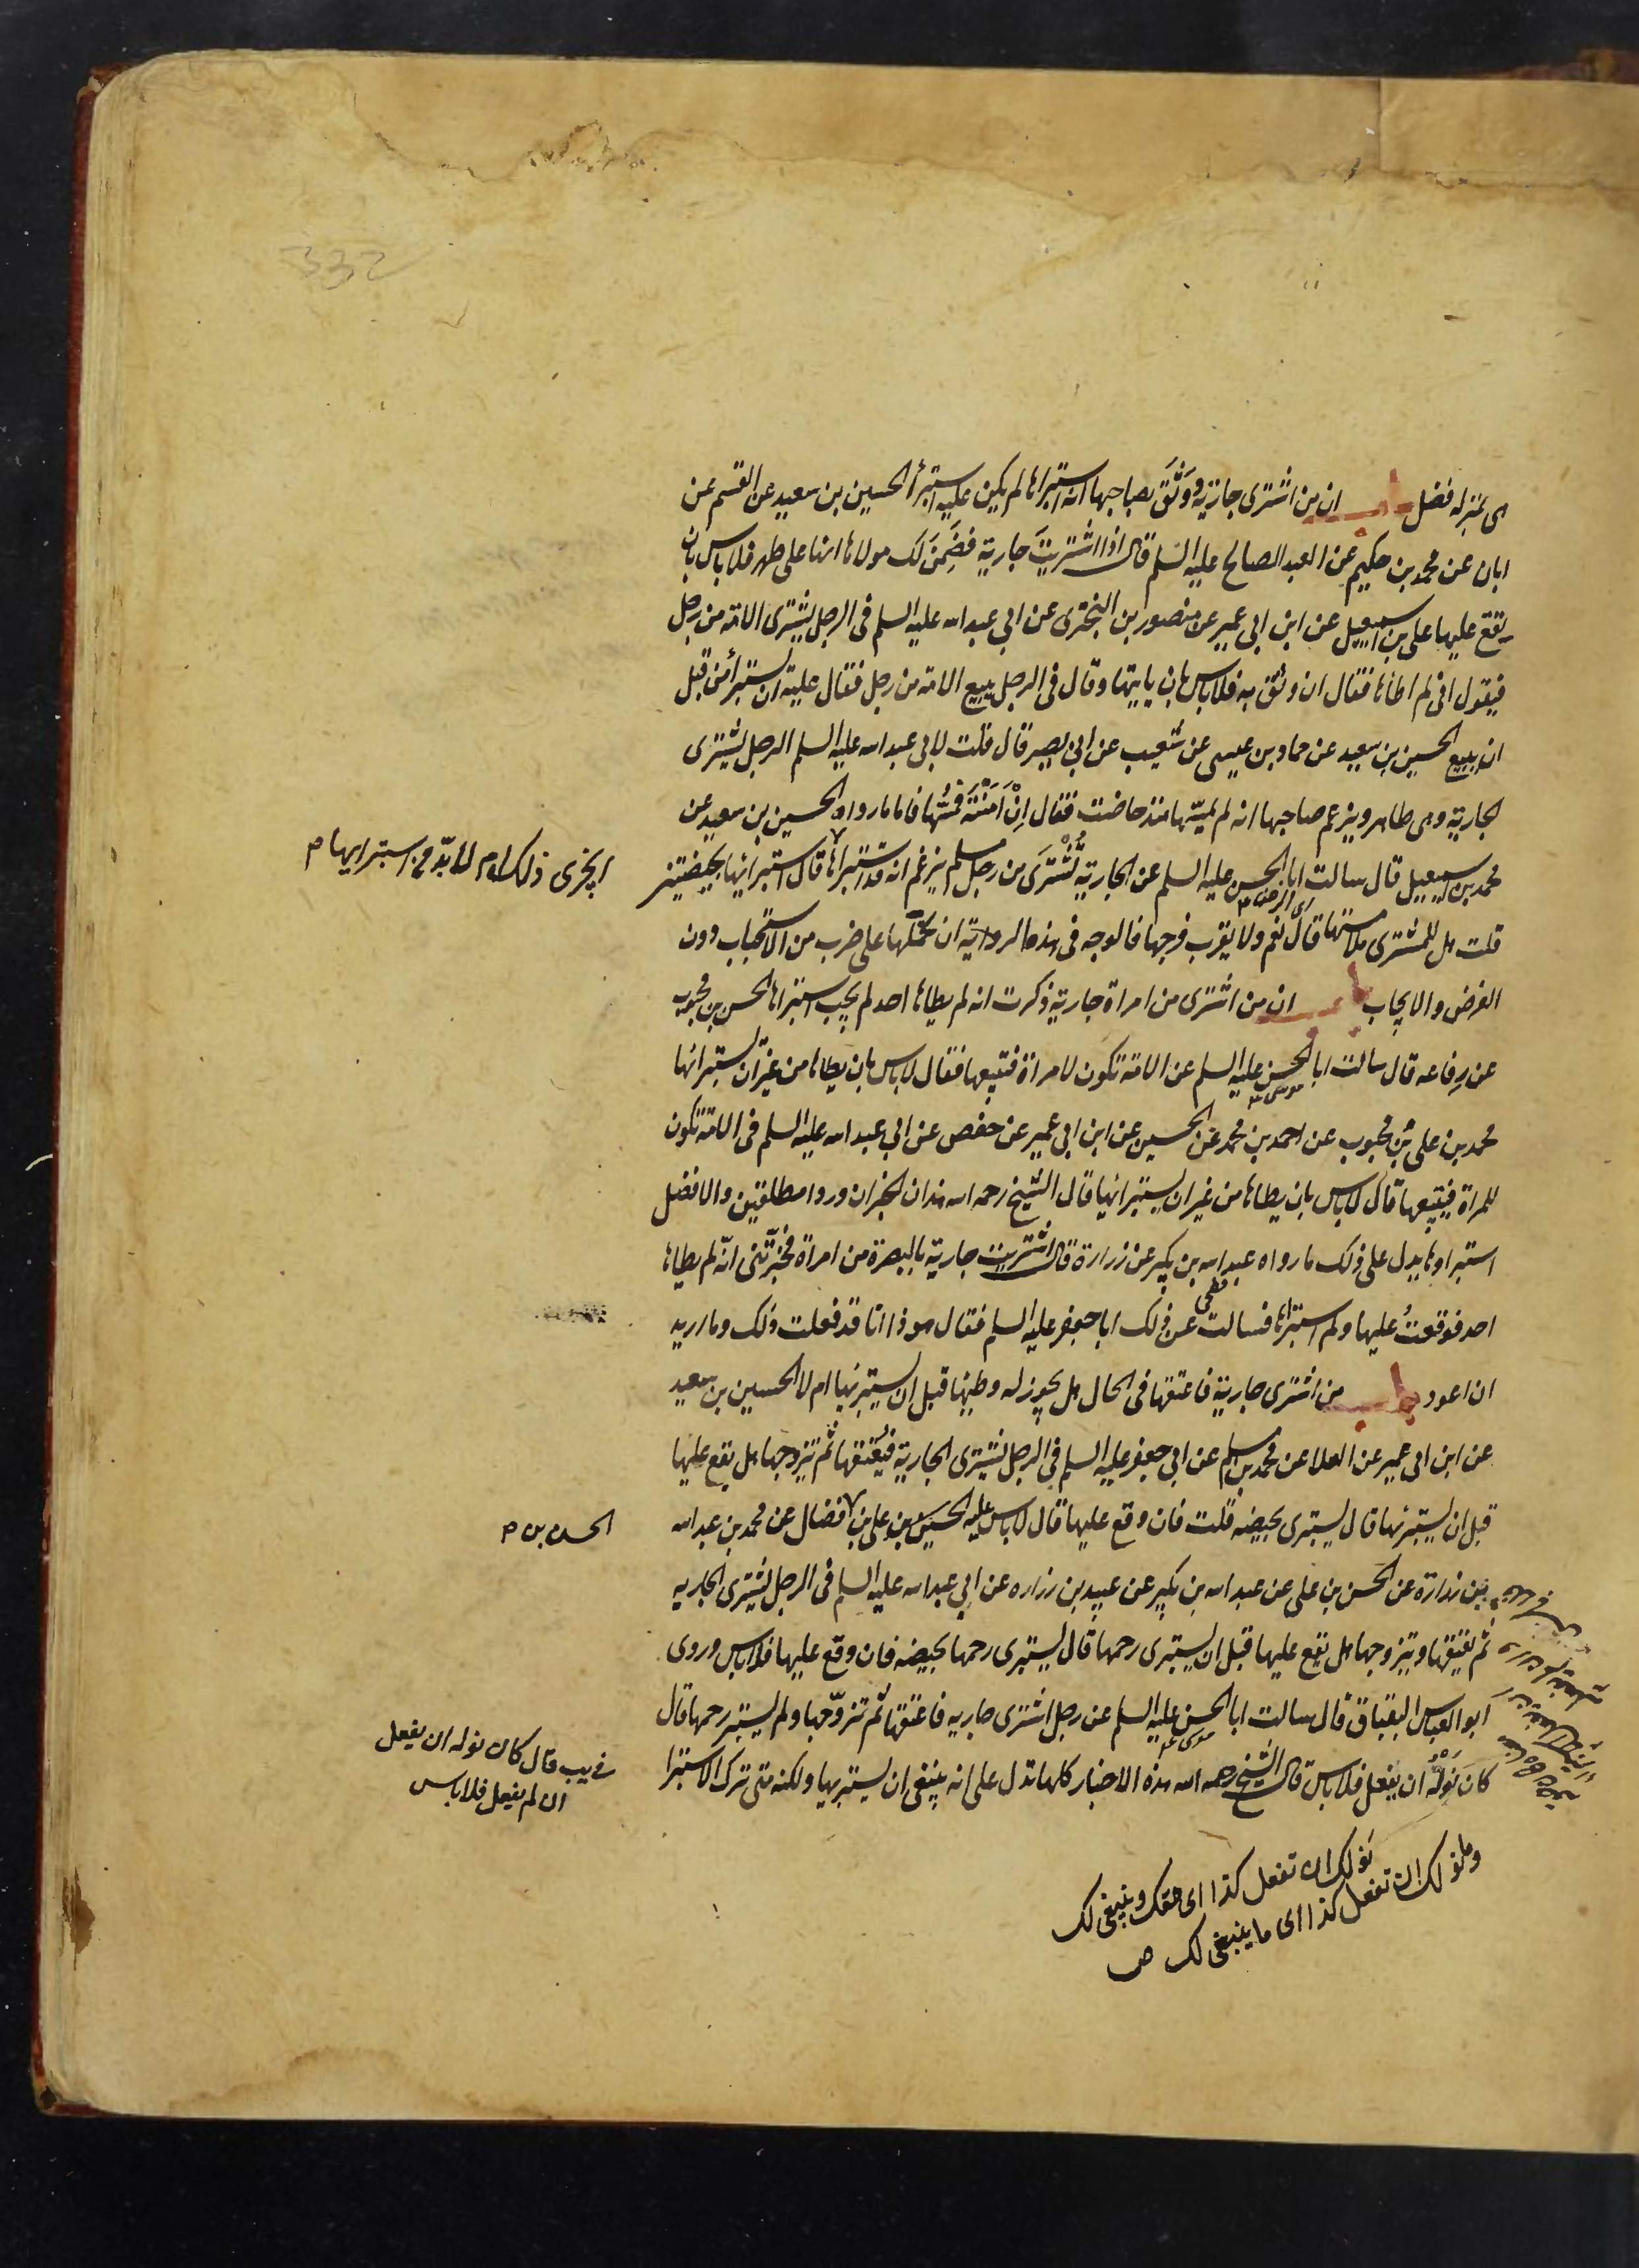 332
هى بمنزله فضل باب ان من اشترى جارية ووَثَقَ بصاحبها انه استبراها لم يكن عليه استبرأ الحسين بن سعيد عن القسم عن
ابان عن محمد بن حكيم عن العبد الصالح عليه السلم قال اذا اشتريتَ جارية فضَمِنَ لك مولاها انها على طهر فلا باس بان
يقع عليها على بن اسمعيل عن ابن ابى عمير عن منصور بن البخترى عن ابي عبد الله عليه السلم فى الرجل يشترى الامة من رجل
فيقول انى لم اطاها فقال ان وثق به فلا باس بان ياتيها وقال فى الرجل يبيع الامة من رجل فقال عليه ان يستبرأ من قبل
ان يبيع الحسين بن سعيد عن حماد بن عيسى عن شعيب عن ابى بصير قال قلت لابى عبد الله عليه السلم الرجل يشترى
الجارية وهى طاهر ويزعم صاحبها انه لم يمسّها منذ حاضت فقال اِنْ اَمَنْتَهُ فمسّها فاما ما رواه الحسين بن سعيد عن
محمد بن اسمعيل قال سالت ابا الحسن عليه السلم عن الجارية تُشْتَرَى من رجل مسلم يزعم انه قد استبراها قال استبرائها بحيضتين
ايجزى ذلك ام لا بدّ من استبرايها م
قلت هل للمشترى ملامستها قال نعم ولا يقرب فرجها فالوجه فى هذه الرواية ان نحملها على ضرب من الاستحباب دون
الفرض والايجاب باب ان من اشترى من امراة جارية ذكرت انه لم يطاها احد لم يجب استبراها الحسن بن محبوب
عن رِفاعه قال سالت ابا الحسن موسى عليه السلم عن الامة تكون لامراة فتبيعها فقال لا باس بان يطاها من غير ان يستبرائها
محمد بن على بن محبوب عن احمد بن محمد عن الحسين عن ابن ابى عمير عن حفص عن ابي عبد الله عليه السلم فى الامة تكون
للمراة فيبيعها قال لا باس بان يطاها من غير ان يستبرائها قال الشيخ رحمه الله هذان الخبران وردا مطلقين والافضل
استبراوها يدل على ذلك ما رواه عبد الله بن بكير عن زرارة قال اشتريت جارية بالبصرة من امراة فخبرّتنى انّه لم يطاها
احد فوقعتُ عليها ولم استبرئها فسالت عن ذلك ابا جعفر عليه السلم فقال هو ذا انا قد فعلت ذلك وما اريد
ان اعود باب من اشترى جارية فاعتقها فى الحال هل يجوز له وطيها قبل ان يستبرئها ام لا الحسين بن سعيد
عن ابن ابى عمير عن العلا عن محمد بن مسلم عن ابي جعفر عليه السلم فى الرجل يشترى الجارية فيُعتقها ثم يتزوجها هل يقع عليها
قبل ان يستبرئها قال يستبرى بحيضه قلت فان وقع عليها قال لا باس عليه الحسين بن على بن فضال عن محمد بن عبد الله
الحسن بن م
بن زرارة عن الحسن بن على عن عبد الله بن بكير عن عبيد بن زراره عن ابي عبد الله عليه السلم فى الرجل يشترى الجاريه
ثم يعتقها ويتزوجها هل يقع عليها قبل ان يستبرى رحمها قال يستبرى رحمها بحيضه فان وقع عليها فلا باس وروى
ابو العباس البقباق قال سالت ابا الحسن موسى عليه السلم عن رجل اشترى جاريه فاعتقها ثم تزوّجها ولم يستبر رحمها قال
كان نَوْلُهُ ان يفعل فلا باس قال الشيخ رحمه الله هذه الاخبار كلها تدل على انه ينبغى ان يستبريها ولكنه متى ترك الاستبرا
فى يب قال كان نوله ان يفعل
ان لم يفعل فلا باس
نَولك ان تفعل كذا اى حقك وينبغى لك
وما نولك ان تفعل كذا اى ما ينبغى لك ص